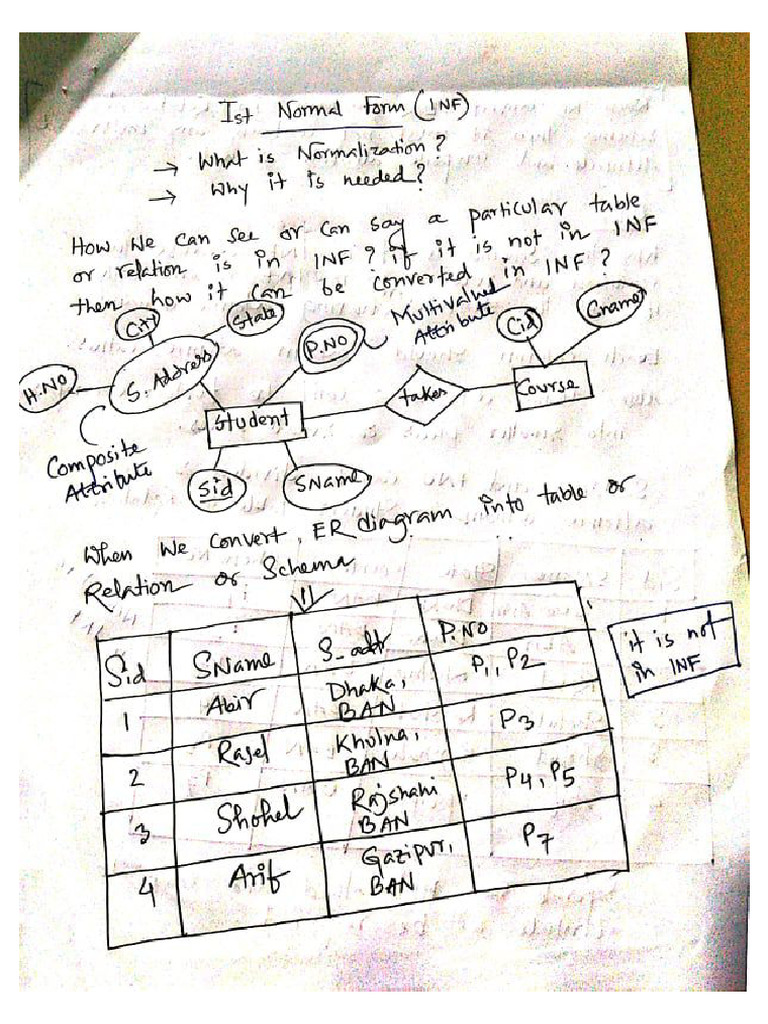 Ist Normal Form (1NF)
→ What is Normalization?
→ Why it is needed?
How we can see or can say a particular table
or relation is in 1NF? if it is not in 1NF
then how it can be converted in 1NF?
City
State
H.NO
S. Address
P.NO
Multivalued
Attribute
Cid
Cname
Student
taken
Course
Composite
Attribute
Sid
SName
When we convert, ER diagram into table or
Relation or Schema
Sid SName S_add P.NO
1 Abir Dhaka, BAN P1, P2
2 Rasel Khulna, BAN P3
3 Shohel Rajshahi BAN P4, P5
4 Arif Gazipur, BAN P7
it is not
in 1NF